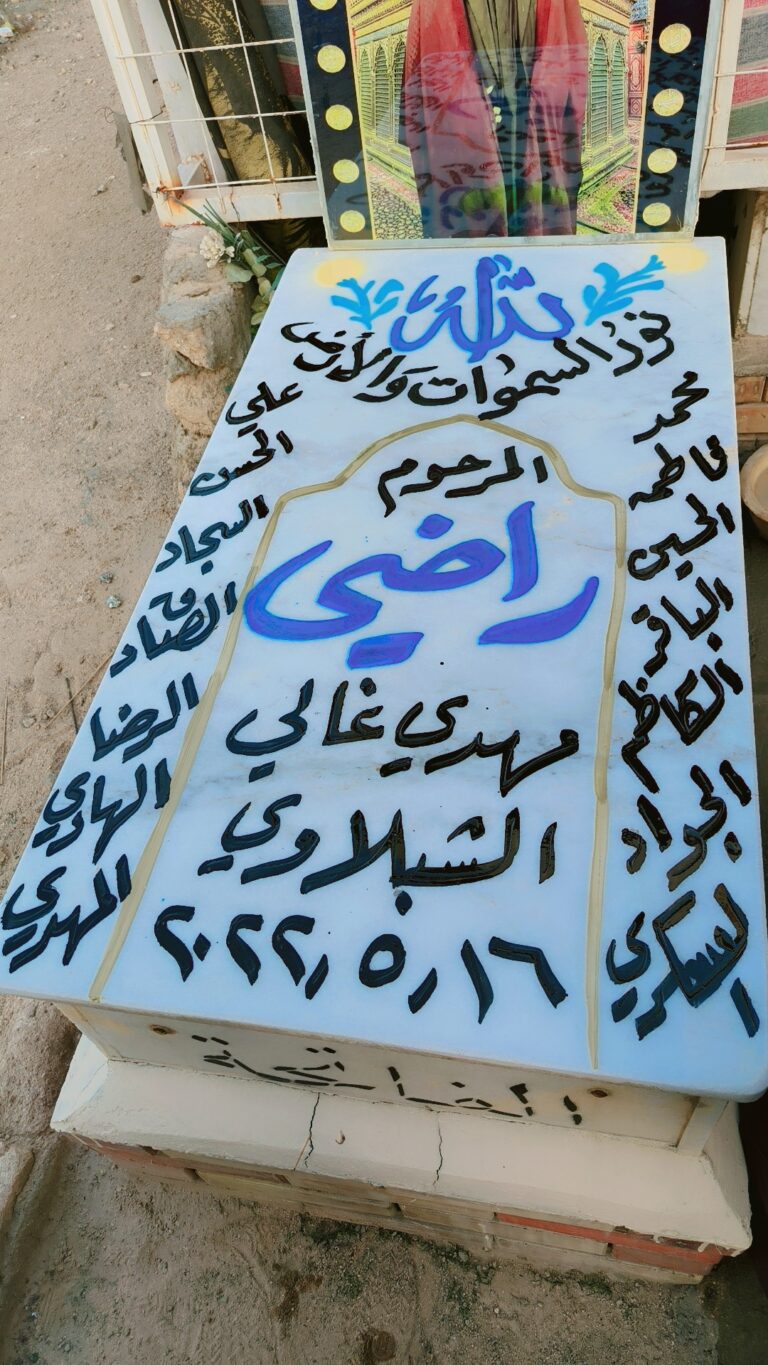 الله
نور السموات والأرض
المرحوم
راضي
مهدي غالي
الشبلاوي
٢٠٢٢٫٥٫١٦
محمد
فاطمه
الحسين
الباقر
الكاظم
الجواد
العسكري
علي
الحسن
السجاد
الصادق
الرضا
الهادي
المهدي
الفاتحة